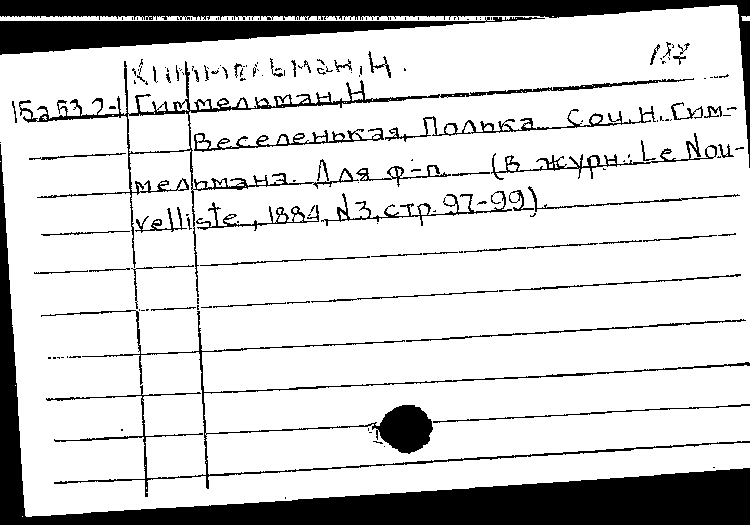 Киммельман, Н.
187
15a 53.2-1 Гиммельман, Н
Веселенькая, Полька. Соч. Н. Гим-
мельмана. Для ф-п. (в журн.: Le Nou-
velliste, 1884, N3, стр. 97-99).